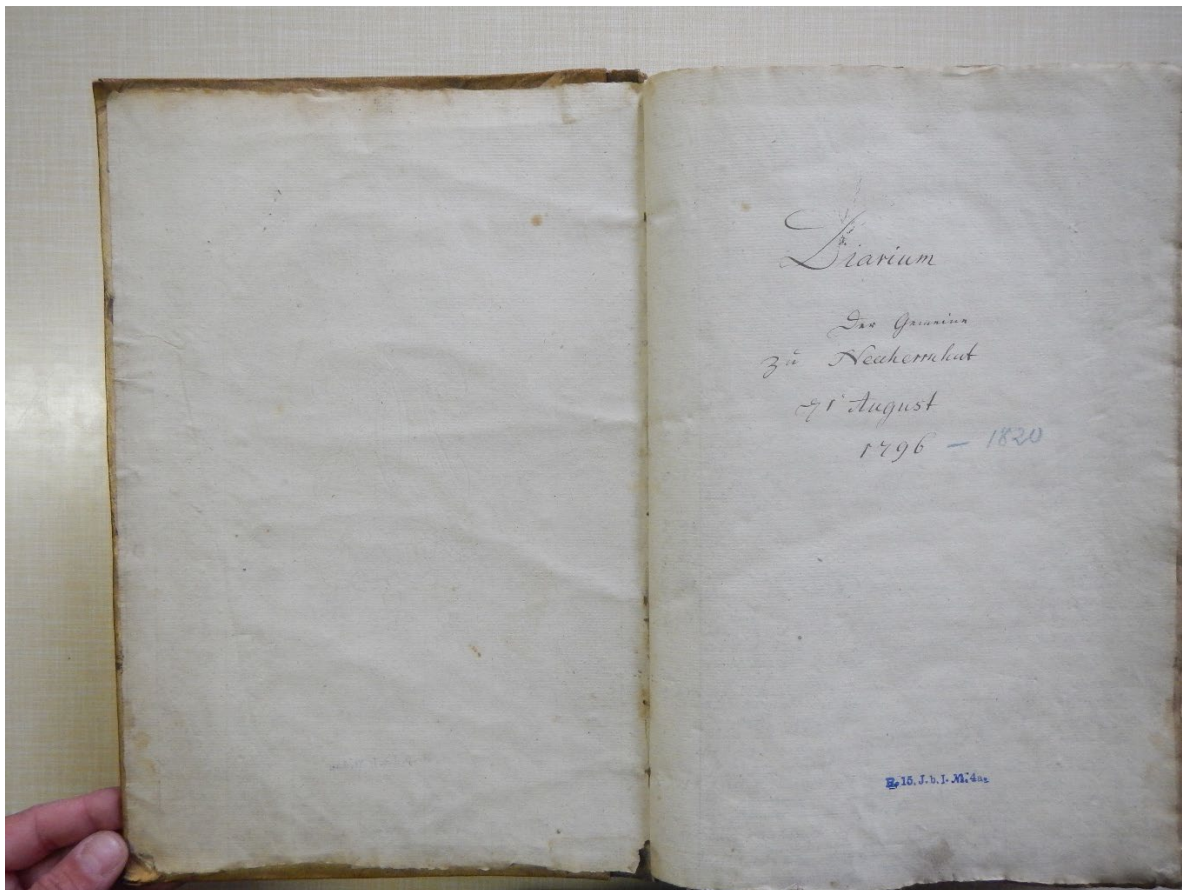 Diarium
Der Gemeine
zu Neuherrnhut
August
1796 – 1820
R. 15. J. b. I.